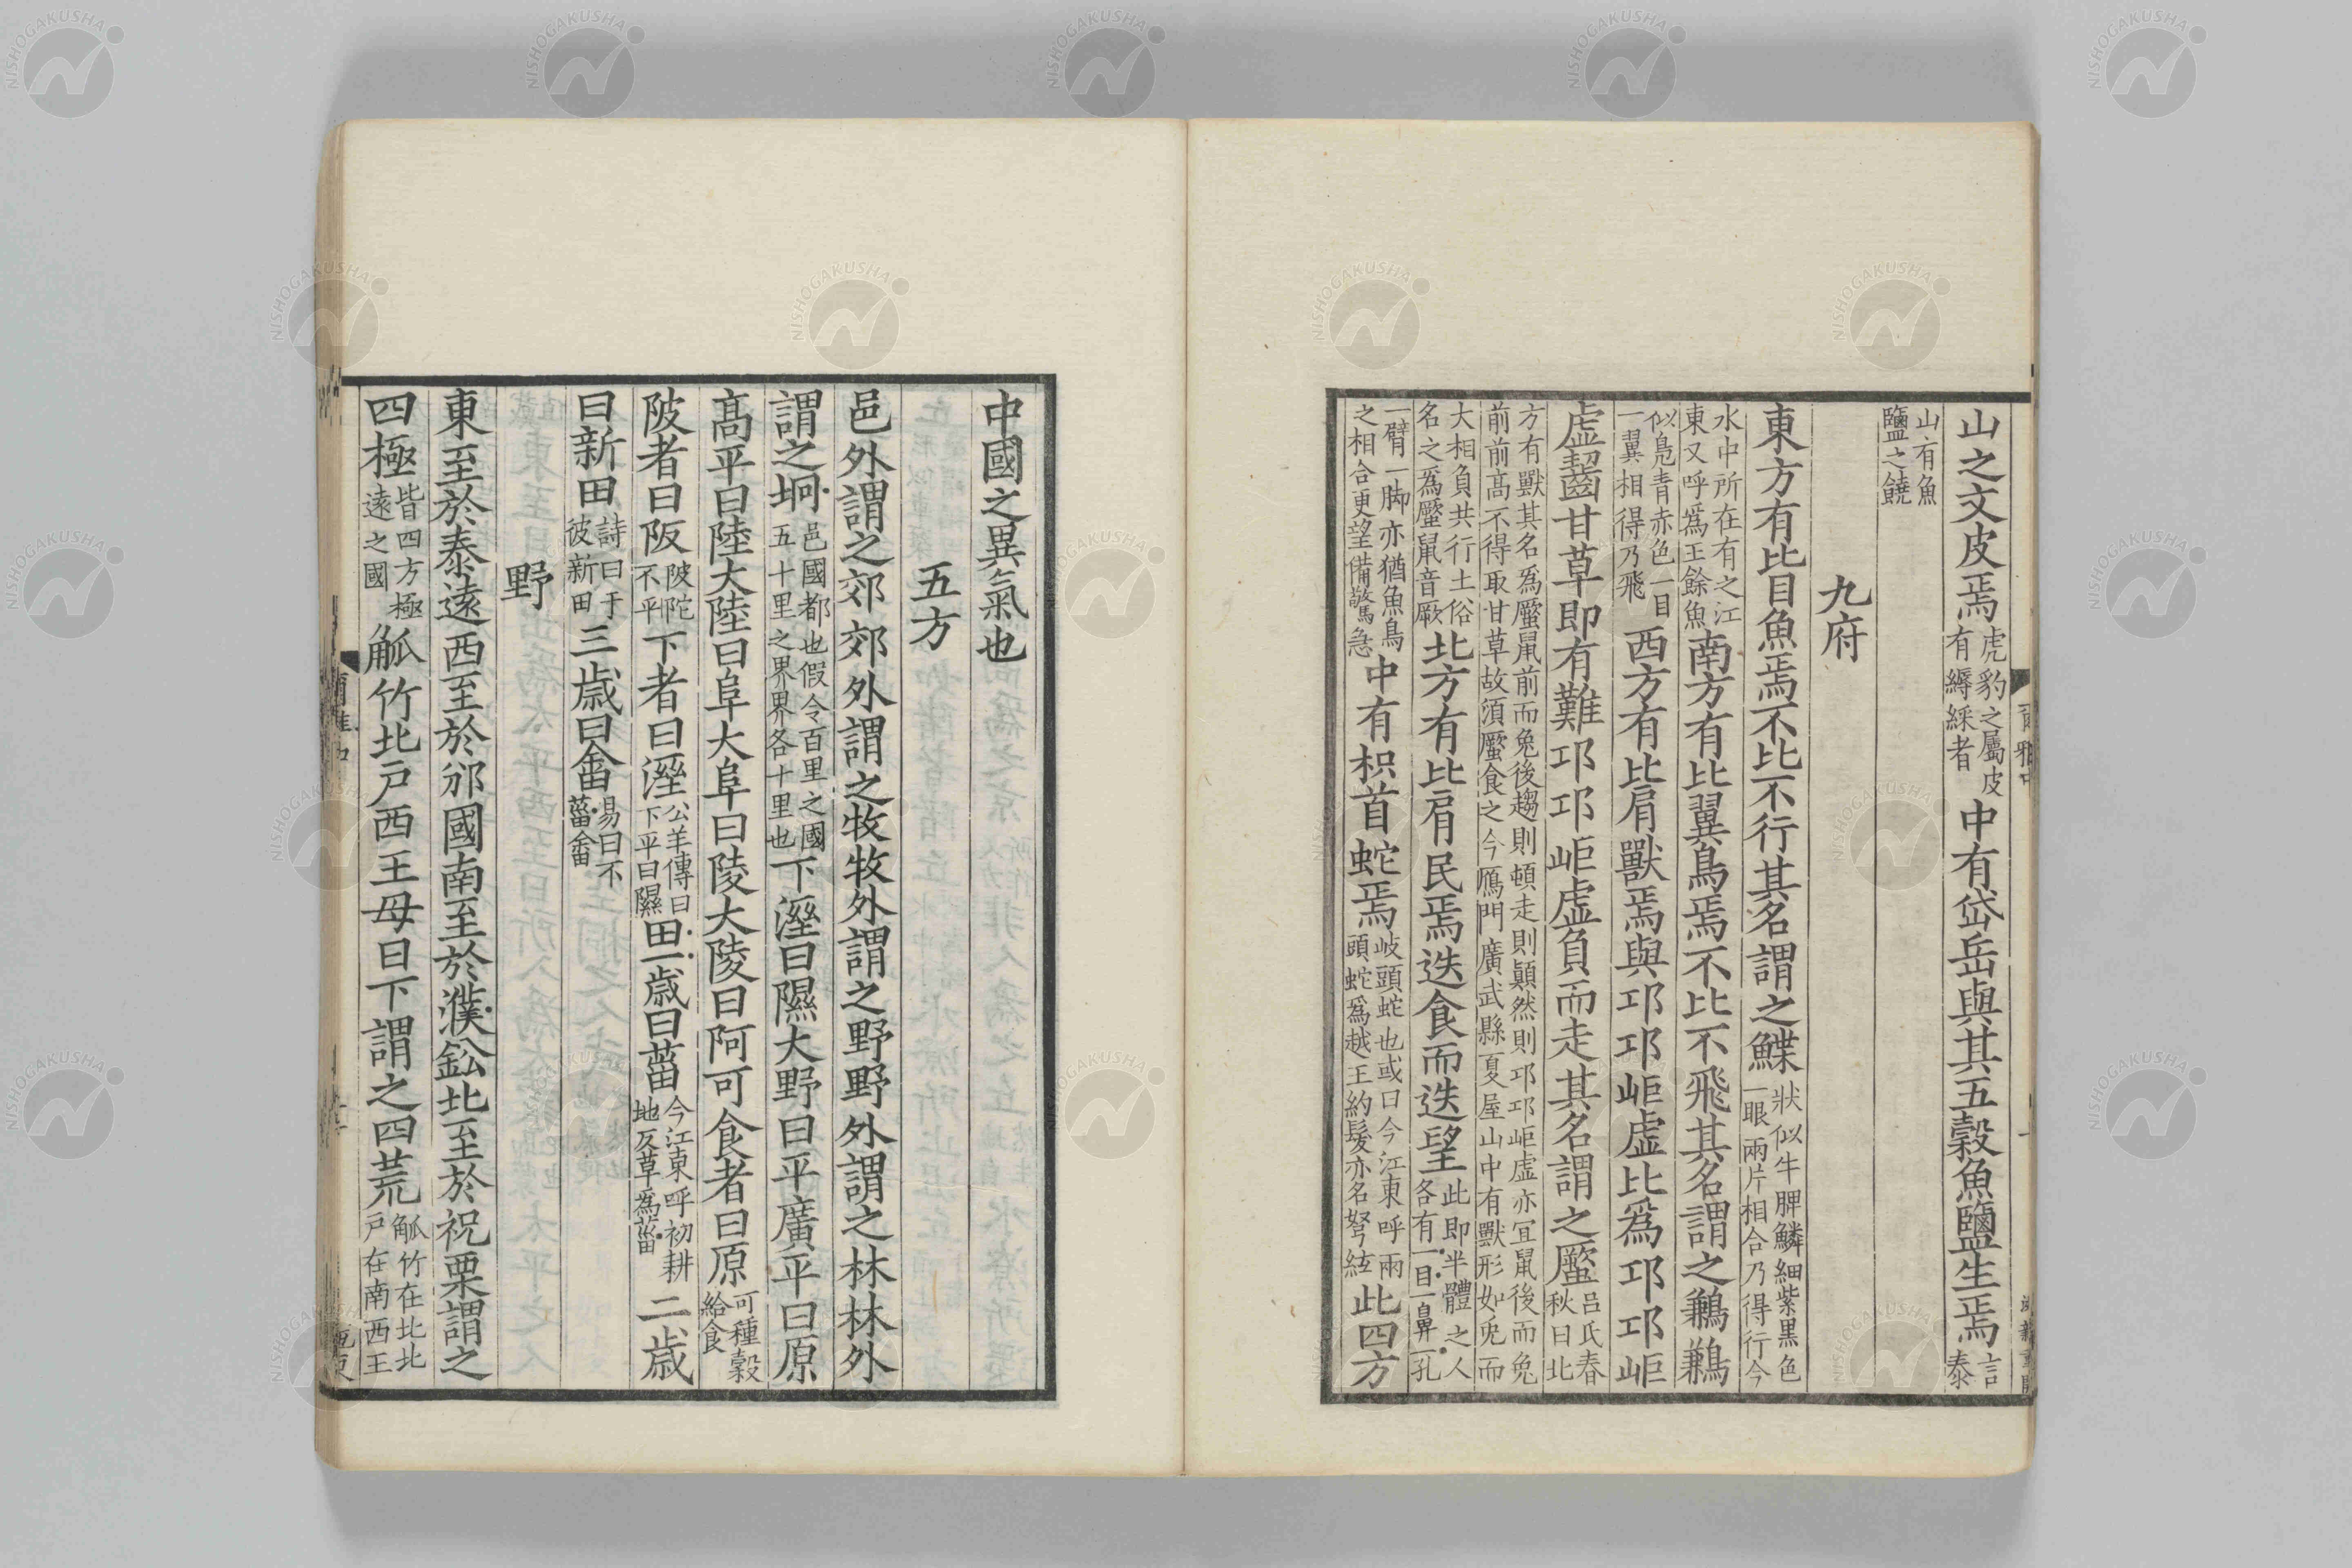 山之文皮焉虎豹之屬皮有縟綵者中有岱岳與其五穀魚鹽生焉言泰
山有魚鹽之饒
九府
東方有比目魚焉不比不行其名謂之鰈狀似牛脾鱗細紫黑色一眼兩片相合乃得行今
水中所在有之江東又呼爲王餘魚南方有比翼鳥焉不比不飛其名謂之鶼鶼
似鳧青赤色一目一翼相得乃飛西方有比肩獸焉與邛邛岠虛比爲邛邛岠
虛齧甘草即有難邛邛岠虛負而走其名謂之蟨呂氏春秋曰北
方有獸其名爲蟨鼠前而兔後趨則頓走則顛然則邛邛岠虛亦宜鼠後而兔前前高不得取甘草故須蟨食之今鴈門廣武縣夏屋山中有獸形如兎而
大相負共行土俗名之爲蟨鼠音厥北方有比肩民焉迭食而迭望此即半體之人各有一目一鼻一孔
一臂一脚亦猶魚鳥之相合更望備驚急中有枳首蛇焉岐頭蛇也或曰今江東呼兩頭蛇爲越王約髮亦名弩絃此四方
中國之異氣也
五方
邑外謂之郊郊外謂之牧牧外謂之野野外謂之林林外
謂之坰邑國都也假令百里之國五十里之界界各十里也下溼曰隰大野曰平廣平曰原
高平曰陸大陸曰阜大阜曰陵大陵曰阿可食者曰原可種穀給食
陂者曰阪陂陀不平下者曰溼公羊傳曰下平曰隰田一歲曰菑今江東呼初耕地反草爲菑二歲
曰新田詩曰于彼新田三歲曰畬易曰不菑畬
野
東至於泰遠西至於邠國南至於濮鈆北至於祝栗謂之
四極皆四方極遠之國觚竹北戶西王母日下謂之四荒觚竹在北北戶在南西王